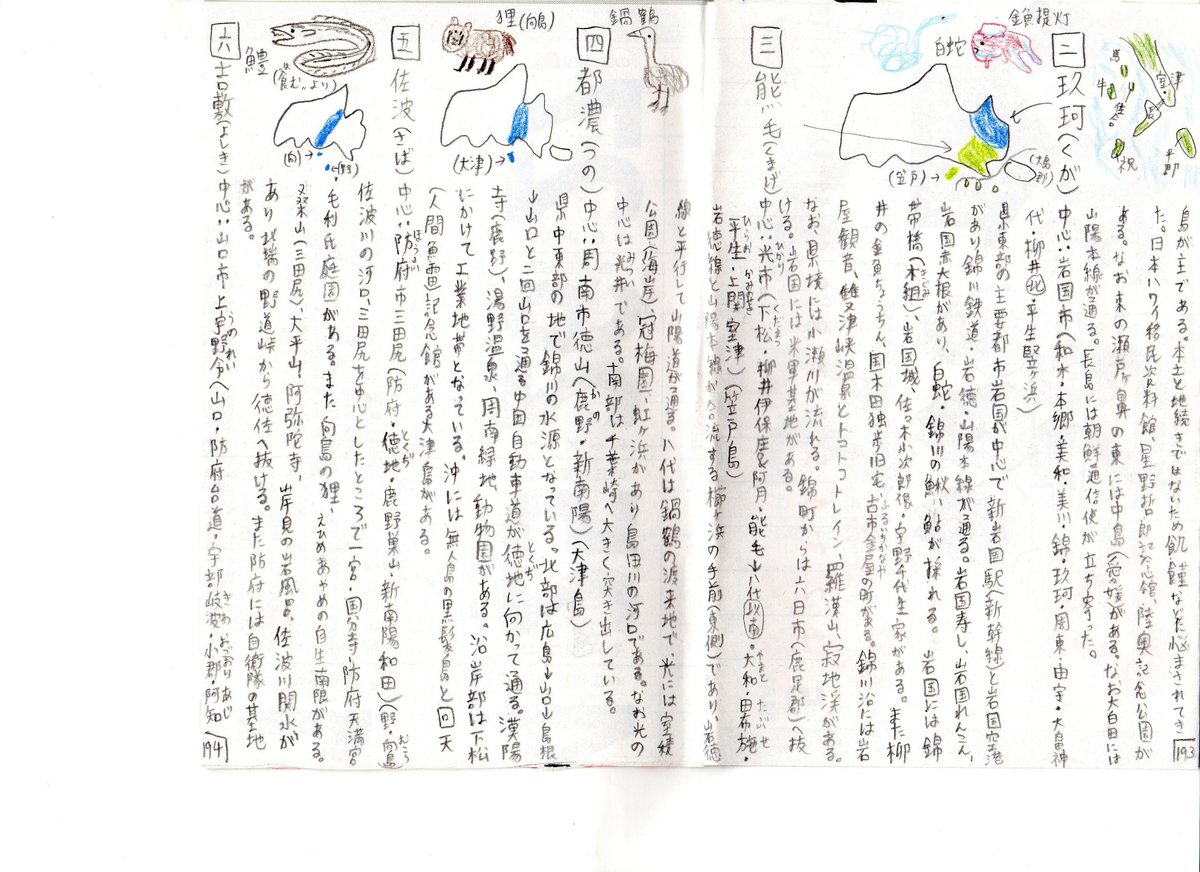 島が主である。本土と地続きではないため飢饉などに悩まされてき
193
た。日本ハワイ移民資料館、星野哲郎記念館、陸奥記念公園が
ある。なお東の瀬戸ヶ鼻の東には中島(愛媛)がある。なお大白には
山陽本線が通る。長島には朝鮮通信使が立ち寄った。
津
室
馬
牛
長
周
祝
平郡
二 玖珂(くが)
中心:岩国市(和木・本郷・美和・美川・錦・玖珂・周東・由宇・大畠神
代・柳井北・平生堅ヶ浜)
県東部の主要都市岩国が中心で新岩国駅(新幹線)と岩国空港
があり錦川鉄道、岩徳・山陽本線が通る。岩国寿し、岩国れんこん、
岩国赤大根があり、白蛇・錦川の鮎が採れる。岩国には錦
帯橋(木組)、岩国城、佐々木小次郎像・宇野千代生家がある。また柳
きぐみ
井の金魚ちょうちん、国木田独歩旧宅、古市金屋の町がある。錦川沿には岩
ふるいちかなや
屋観音、雙津峡温泉とトコトコトレイン、羅漢山、寂地渓がある。
なお、県境には小瀬川が流れる。錦町からは六日市(鹿足郡)へ抜
ける。岩国には米軍基地がある。
金魚提灯
白蛇
(大島郡)
(笠戸)→
三 熊毛(くまげ)
中心:光市(下松・柳井伊保庄&阿月・熊毛↓八代以南・大和・田布施・
ひかり
くだまつ
やまと
たぶせ
平生・上関室津)(笠戸島)
ひらお
かみのせき
岩徳線と山陽本線が合流する櫛ヶ浜の手前(東側)であり、岩徳
線と平行して山陽道が通る。八代は鍋鶴の渡来地で、光には室積
公園(海岸)、冠梅園、虹ヶ浜があり島田川の河口である。なお光の
中心は光井である。南部は千葉崎へ大きく突き出している。
みつい
鍋鶴
四 都濃(つの)
中心:周南市徳山(鹿野・新南陽)(大津島)
かの
県中東部の地で錦川の水源となっている。北部は広島→山口→島根
→山口と二回山口を通る中国自動車道が徳地に向かって通る。漢陽
とくぢ
寺(鹿野)、湯野温泉、周南緑地、動物園がある。沿岸部は下松
にかけて工業地帯となっている。沖には無人島の黒髪島と回天
(人間魚雷)記念館がある大津島がある。
狸(向島)
(大津)→
五 佐波(さば)
中心:防府市三田尻(防府・徳地・鹿野巣山・新南陽和田)(野・向島)
ほうふ
とくぢ
むこう
佐波川の河口、三田尻を中心としたところで一宮・国分寺・防府天満宮
・毛利氏庭園がある。また向島の狸、えひめあやめの自生南限がある。
桑山(三田尻)、大平山、阿弥陀寺、岸見の岩風呂、佐波川関水が
あり北端の野道峠から徳佐へ抜ける。また防府には自衛隊の基地
がある。
鱧
(〝食む〟より)
(向)→
←(野)
六 吉敷(よしき)
中心:山口市上宇野令(山口・防府台道・宇部岐波・小郡・阿知
うのれい
きわ
おごおり
あじ
194